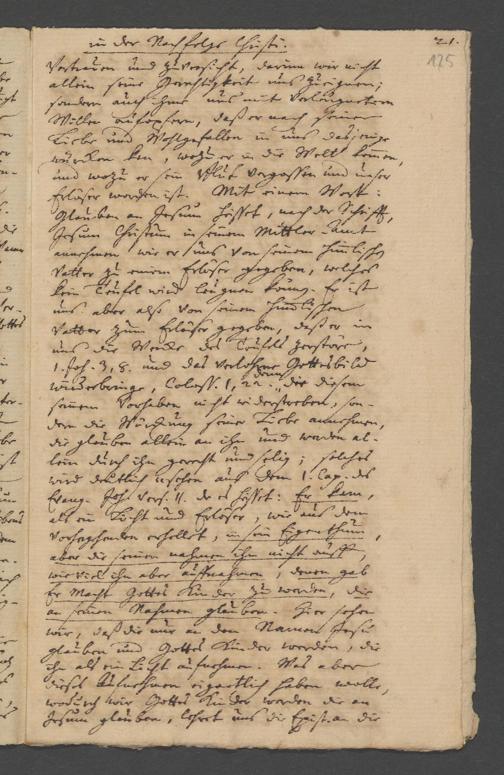 in der Nachfolge Christi.
21.
125
Vertrauen und Zuversicht, darum wir nicht
allein seine Gerechtigkeit uns zueignen;
sondern auch ihme uns mit verleugnetem
Willen aufopfern, daß er nach seiner
Liebe und Wohlgefallen in uns dasjenige
würcken kan, wozu er in die Welt kom̄en,
und wozu er sein Blut vergossen und unser
Erlöser worden ist. Mit einem Wort:
Glauben an Jesum heisset, nach der Schrifft,
Jesum Christum in seinem Mittler-Amt
annehmen wie er uns von seinem him̄lischen
Vatter zu einem Erlöser gegeben, welches
kein Teufel wird leugnen können. Er ist
uns aber also von seinem him̄lischen
Vatter zum Erlöser gegeben, daß er in
uns die Wercke des Teufels zerstöre,
1. Joh. 3, 8. und das verlohrne Gottesbild
wiederbringe, Coloss. 1, 22. die diesem
seinem Vorhaben nicht widerstreben, son-
dern die Würckung seiner Liebe annehmen,
die glauben allein an ihn und werden al-
lein durch ihn gerecht und selig; solches
wird deutlich aus dem 1. Cap. des
Evang. Joh. vers. 11. da es heisset: Er kam,
als ein Licht und Erlöser, wie aus dem
vorhergehenden erhellet, in sein Eigenthum,
aber die seinen nahmen ihn nicht auff,
wie viel ihn aber auffnahmen, denen gab
Er Macht Gottes Kinder zu werden, die
an seinen Nahmen glauben. Hier sehen
wir, daß die nur an den Namen Jesu
glauben und Gottes Kinder werden, die
ihn als ein Licht aufnehmen. Was aber
dieses Aufnehmen eigentlich haben wolle,
wodurch wir Gottes Kinder werden die an
Jesum glauben, lehret uns die Epist. an die